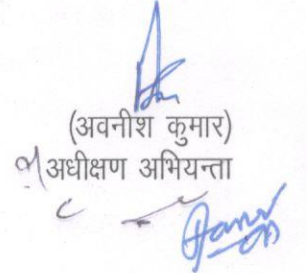 (अवनीश कुमार)
अधीक्षण अभियन्ता